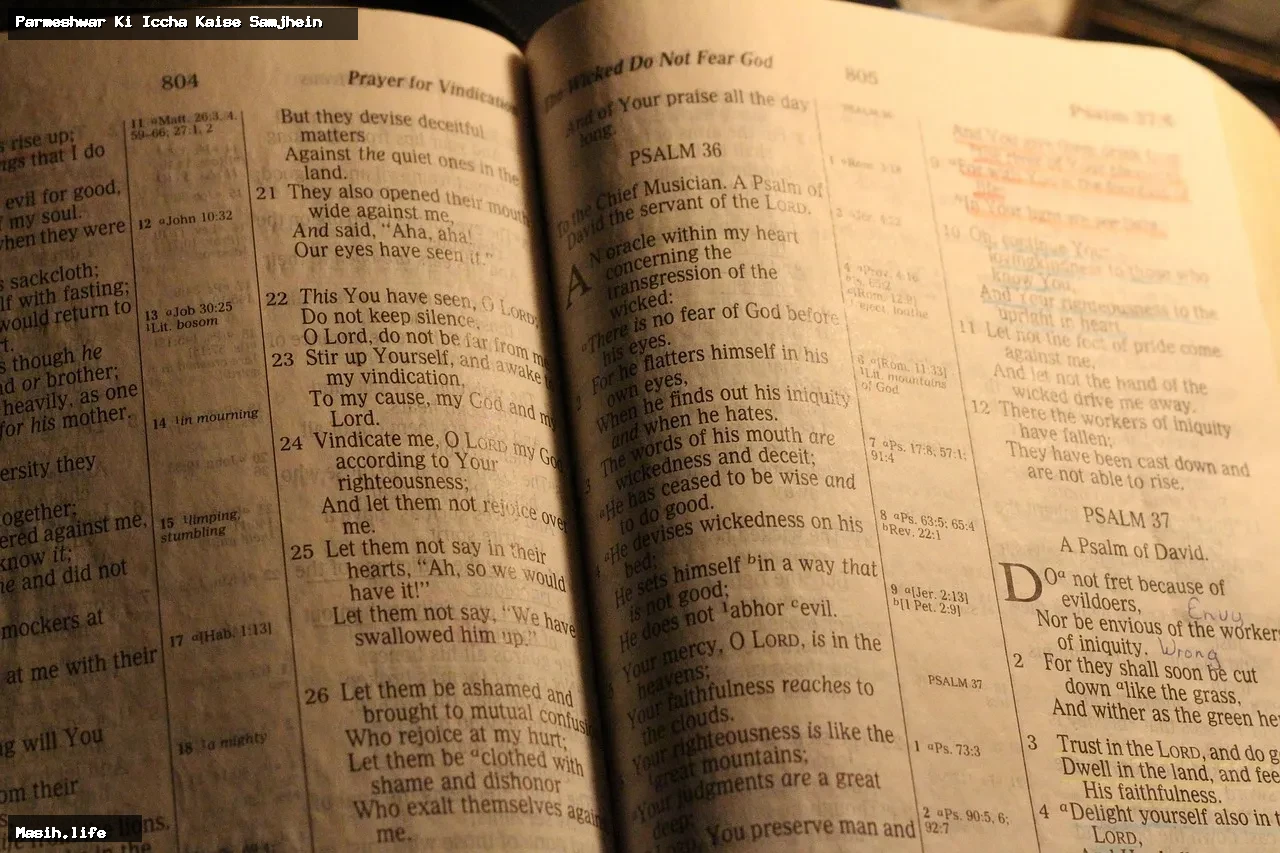 Parmeshwar Ki Iccha Kaise Samjhein
804
Prayer for Vindication
s rise up;
ngs that I do
evil for good,
my soul.
when they were
s sackcloth;
lf with fasting;
would return to
s though he
d or brother;
heavily, as one
for his mother.
ersity they
ogether;
ered against me,
know it;
e and did not
mockers at
at me with their
g will You
om their
ions.
11 aMatt. 26:3, 4,
59–66; 27:1, 2
12 aJohn 10:32
13 aJob 30:25
1Lit. bosom
14 1in mourning
15 1limping,
stumbling
17 a[Hab. 1:13]
18 1a mighty
But they devise deceitful
matters
Against the quiet ones in the
land.
21 They also opened their mouth
wide against me,
And said, "Aha, aha!
Our eyes have seen it."
22 This You have seen, O LORD;
Do not keep silence;
O Lord, do not be far from me
23 Stir up Yourself, and awake to
my vindication,
To my cause, my God and my
Lord.
24 Vindicate me, O LORD my God
according to Your
righteousness;
And let them not rejoice over
me.
25 Let them not say in their
hearts, "Ah, so we would
have it!"
Let them not say, "We have
swallowed him up."
26 Let them be ashamed and
brought to mutual confusi
Who rejoice at my hurt;
Let them be aclothed with
shame and dishonor
Who exalt themselves again
me.
The Wicked Do Not Fear God
805
And of Your praise all the day
long.
PSALM 36
To the Chief Musician. A Psalm of
David the servant of the LORD.
AN oracle within my heart
concerning the
transgression of the
wicked:
aThere is no fear of God before
his eyes.
2 For he flatters himself in his
own eyes,
When he finds out his iniquity
and when he hates.
3 The words of his mouth are
wickedness and deceit;
aHe has ceased to be wise and
to do good.
4 aHe devises wickedness on his
bed;
He sets himself bin a way that
is not good;
He does not 1abhor cevil.
5 Your mercy, O LORD, is in the
heavens;
Your faithfulness reaches to
the clouds.
6 Your righteousness is like the
great mountains;
aYour judgments are a great
deep;
O LORD, You preserve man and
6 a[Rom. 11:33]
1Lit. mountains
of God
7 aPs. 17:8; 57:1;
91:4
8 aPs. 63:5; 65:4
bRev. 22:1
9 a[Jer. 2:13]
b[1 Pet. 2:9]
PSALM 37
1 aPs. 73:3
2 aPs. 90:5, 6;
92:7
Psalm 37:4
aIn Your light we see light.
10 Oh, continue Your
lovingkindness to those who
know You,
And Your righteousness to the
upright in heart.
11 Let not the foot of pride come
against me,
And let not the hand of the
wicked drive me away.
12 There the workers of iniquity
have fallen;
They have been cast down and
are not able to rise.
PSALM 37
A Psalm of David.
DOa not fret because of
evildoers,
Envy
Nor be envious of the workers
of iniquity. Wrong
2 For they shall soon be cut
down alike the grass,
And wither as the green he
3 Trust in the LORD, and do g
Dwell in the land, and fee
His faithfulness.
4 aDelight yourself also in t
LORD,
Masih.life